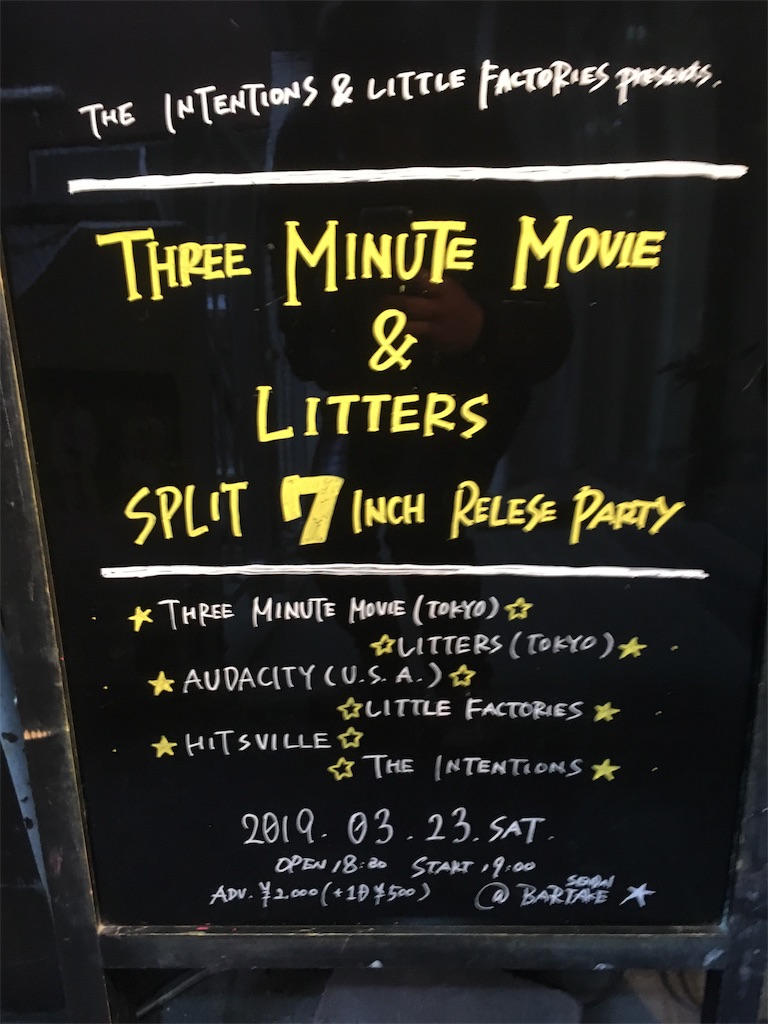 THE INTENTIONS & LITTLE FACTORIES presents.
THREE MINUTE MOVIE
&
LITTERS
SPLIT 7 INCH RELESE PARTY
★ THREE MINUTE MOVIE (TOKYO) ☆
☆ LITTERS (TOKYO) ★
★ AUDACITY (U.S.A.) ☆
☆ LITTLE FACTORIES ★
★ HITSVILLE ☆
☆ THE INTENTIONS ★
2019. 03. 23. SAT.
OPEN 18:30 START 19:00
ADV. ¥2.000 (+1D ¥500) @